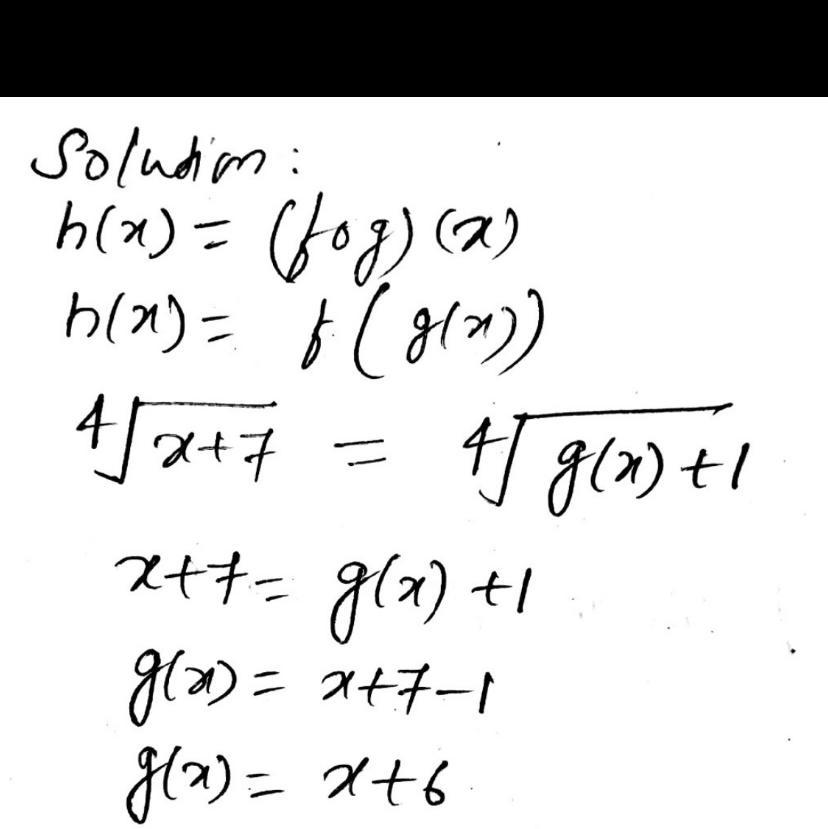 Solution:
h(x) = (fog)(x)
h(x) = f(g(x))
∜(x+7) = ∜(g(x)+1)
x+7 = g(x)+1
g(x) = x+7-1
g(x) = x+6